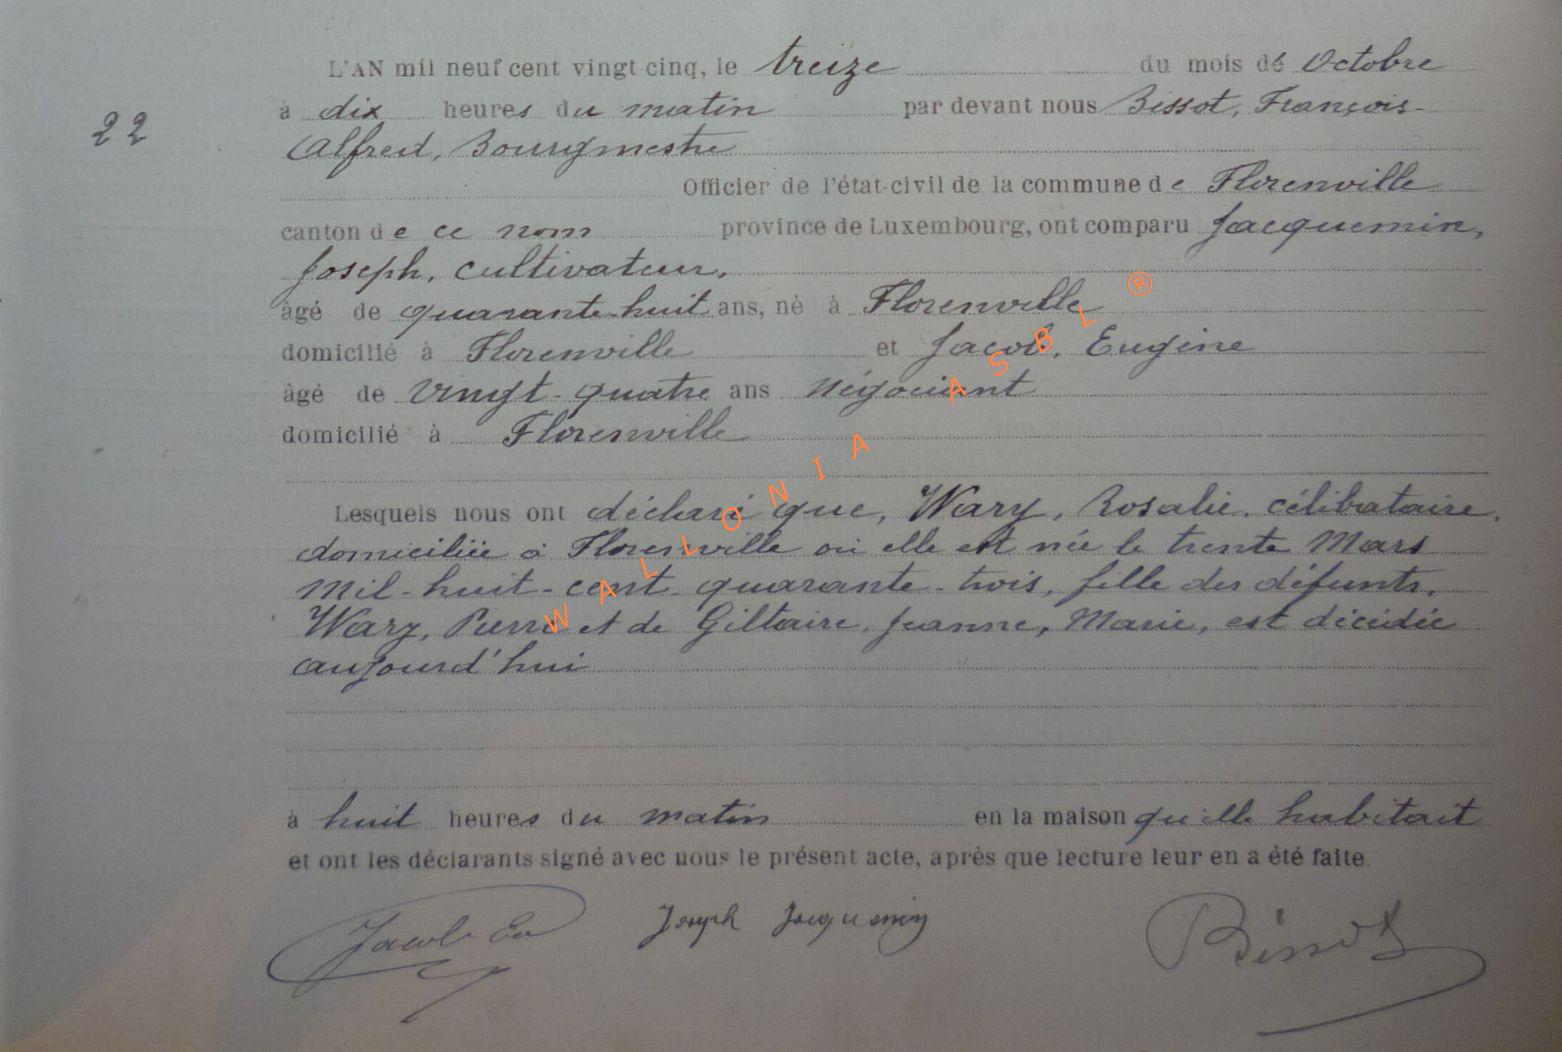 L'AN mil neuf cent vingt cinq, le treize du mois de Octobre
22
à dix heures du matin par devant nous Bissot, François-
Alfred, Bourgmestre
Officier de l'état-civil de la commune de Florenville
canton de ce nom province de Luxembourg, ont comparu Jacquemin,
Joseph, cultivateur,
âgé de quarante-huit ans, né à Florenville
domicilié à Florenville et Jacob, Eugène
âgé de vingt-quatre ans négociant
domicilié à Florenville
Lesquels nous ont déclaré que, Wary, Rosalie, célibataire,
domiciliée à Florenville où elle est née le trente Mars
mil-huit-cent-quarante-trois, fille des défunts,
Wary, Pierre et de Giltaire, Jeanne, Marie, est décédée
aujourd'hui
à huit heures du matin en la maison qu'elle habitait
et ont les déclarants signé avec nous le présent acte, après que lecture leur en a été faite.
Jacob Eu Joseph Jacquemin Bissot
WALLONIA ASBL ®